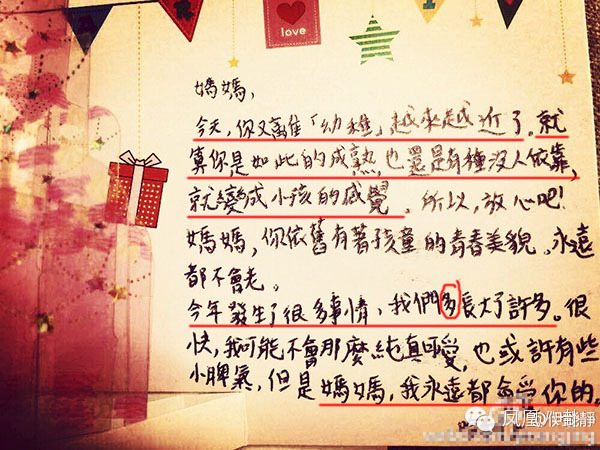 love
媽媽,
今天,你又離「幼稚」越來越近了。就
算你是如此的成熟,也還是有種沒人依靠,
就變成小孩的感覺。所以,放心吧!
媽媽,你依舊有著孩童的青春美貌。永遠
都不會老。
今年發生了很多事情,我們多長大了許多。很
快,我可能不會那麼純真可愛,也或許有些
小脾氣,但是媽媽,我永遠都會愛你的。